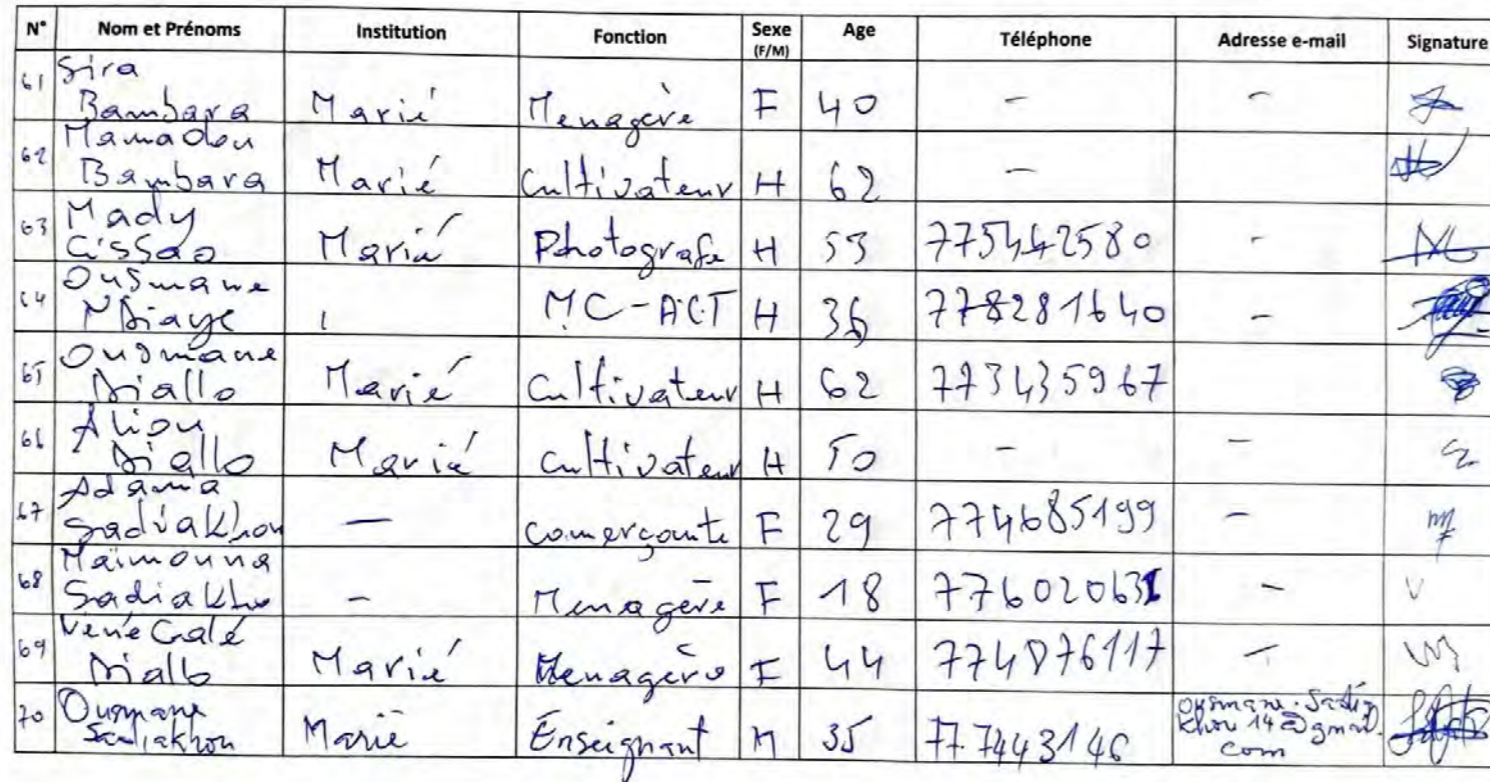 N° Nom et Prénoms Institution Fonction Sexe (F/M) Age Téléphone Adresse e-mail Signature
61 Sira
Bambara Marié Menagère F 40 - -
62 Mamadou
Bambara Marié Cultivateur H 62 -
63 Mady
Cissao Marié Photografe H 53 775442580 -
64 Ousmane
NDiaye MC-ACT H 36 778281640 -
65 Ousmane
Diallo Marié Cultivateur H 62 773435967
66 Aliou
Diallo Marié Cultivateur H 50 - -
67 Adama
Sadiakhou - comerçante F 29 774685199 -
68 Maïmouna
Sadiakho - Menagère F 18 776020631 -
69
Diallo Marié Menagère F 44 774876117 -
70 Ousmane
Sadiakhou Marié Enseignant H 35 777443146 ousmane.sadia
khou14@gmail.
com